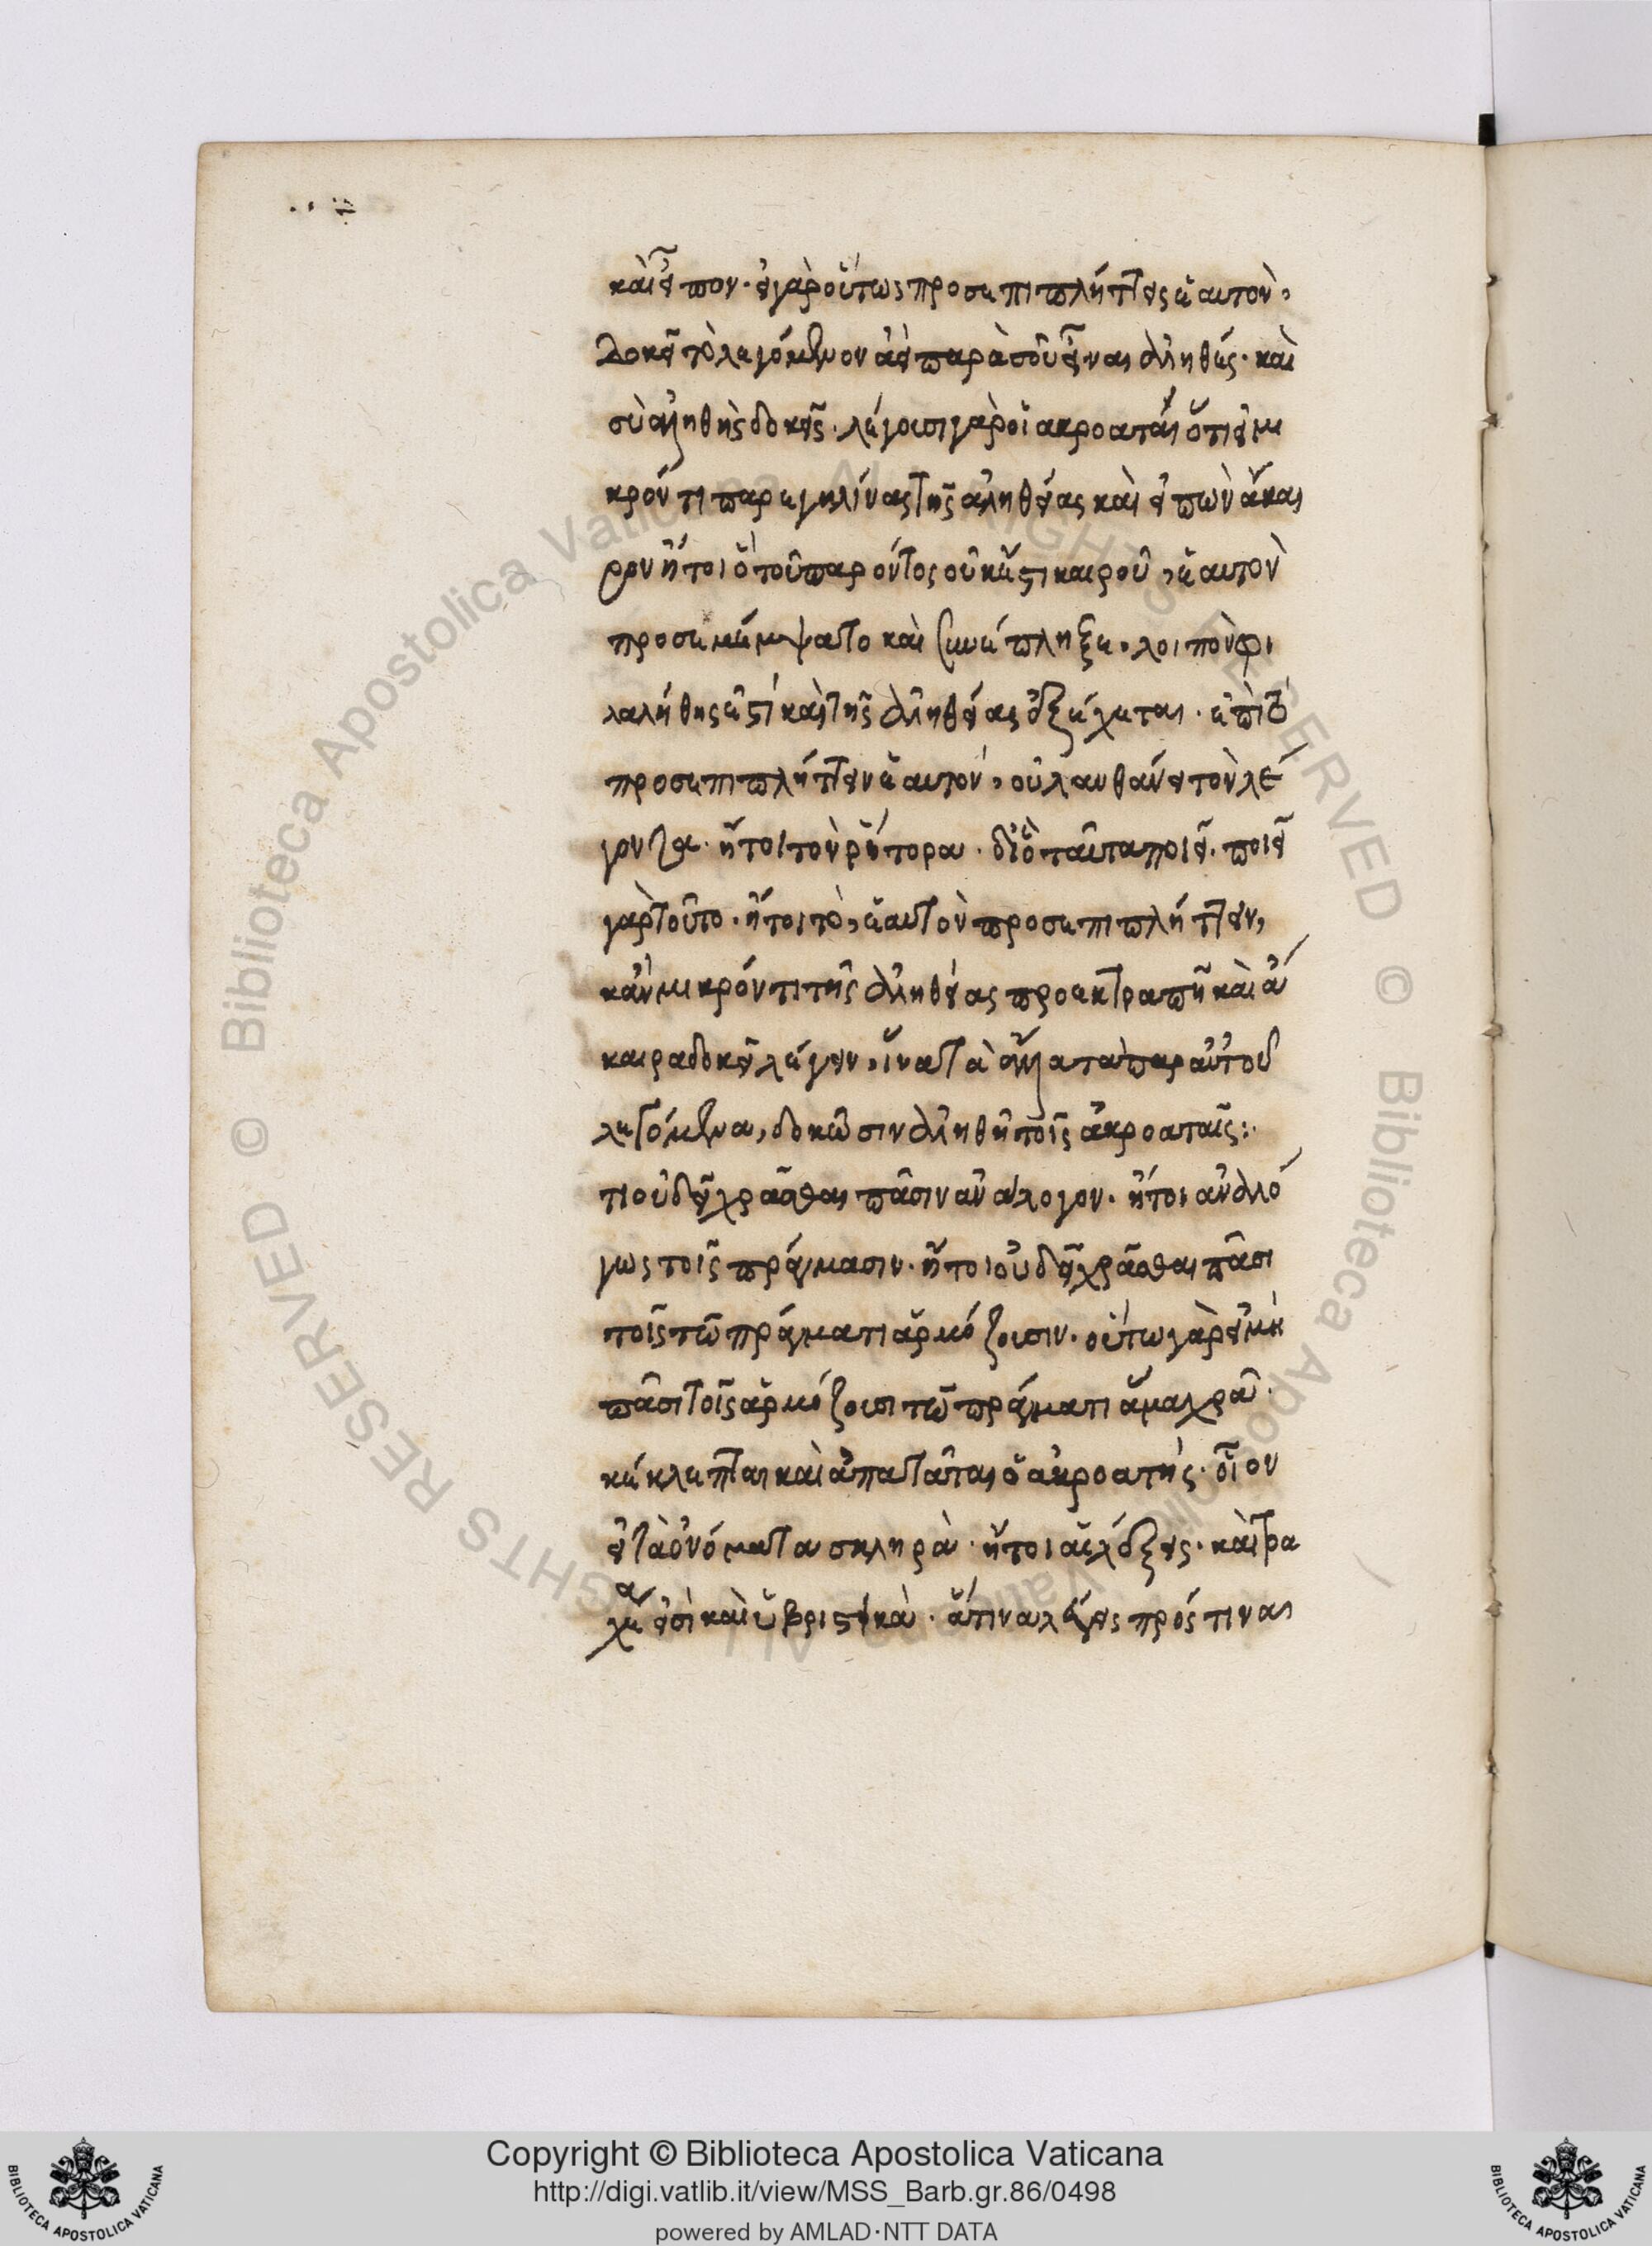 καὶ εἶπον· εἰ γὰρ οὕτως προσεπιπλήττεις ἑαυτὸν,
δοκεῖ τὸ λεγόμενον ἀεὶ παρὰ σοῦ εἶναι ἀληθές· καὶ
σὺ ἀληθὴς δοκεῖς· λέγουσι γὰρ οἱ ἀκροαταὶ ὅτι εἰ μι
κρόν τι παρεγκλίνας τῆς ἀληθείας καὶ εἰπὼν ἄκαι
ρον ἤτοι ὃ τοῦ παρόντος οὐκ ἔστι καιροῦ, ἑαυτὸν
προσεμέμψατο καὶ ἐπέπληξε· λοιπὸν φι
λαλήθης ἐστὶ καὶ τῆς ἀληθείας ἐξέχεται· ἐπὶ τὸ
προσεπιπλήττειν ἑαυτόν, οὐ λανθάνει τὸν λέ
γοντα· ἤτοι τὸν ῥήτορα· διὸ ταῦτα ποιεῖ· ποιεῖ
γὰρ τοῦτο· ἤτοι τὸ, ἑαυτὸν προσεπιπλήττειν,
κἂν μικρόν τι τῆς ἀληθείας προεκτραπῇ καὶ ἄ
καιρα δοκεῖ λέγειν, ἵνα τὰ ἄλλα τὰ παρ αὐτοῦ
λεγόμενα, δοκῶσιν ἀληθῆ τοῖς ἀκροαταῖς:·
τι οὐ δεῖ χρᾶσθαι πᾶσιν ἀνάλογον· ἤτοι ἀναλό
γως τοῖς πράγμασιν· ἤτοι οὐ δεῖ χρᾶσθαι πᾶσι
τοῖς τῶ πράγματι ἁρμόζουσιν· οὕτω γὰρ εἰ μὴ
πᾶσι τοῖς ἁρμόζουσι τῶ πράγματι ἅμα χρᾶ·
κέκλεπται καὶ ἀπατᾶται ὁ ἀκροατής· οἷον
εἰ τὰ ὀνόματα σκληρὰ· ἤτοι αἱ λέξεις· καὶ τρα
χέα εἰσὶ καὶ ὑβριστικὰ· ἅτινα λέγεις πρός τινα
Copyright © Biblioteca Apostolica Vaticana
http://digi.vatlib.it/view/MSS_Barb.gr.86/0498
powered by AMLAD·NTT DATA